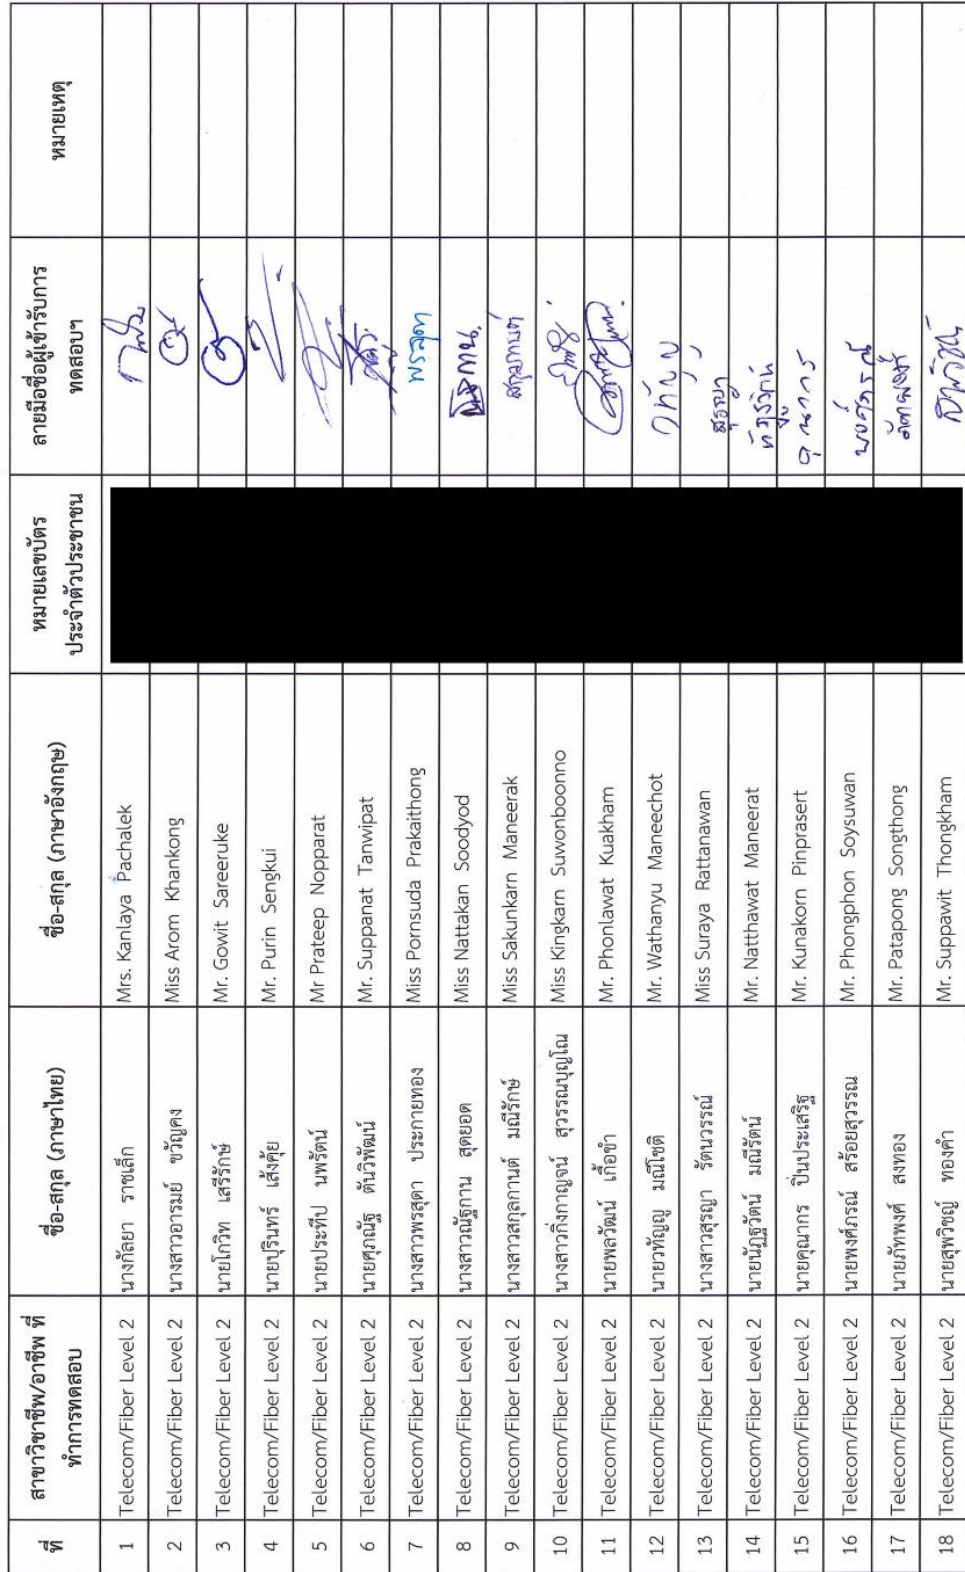 ที่ สาขาวิชาชีพ/อาชีพ ที่ทำการทดสอบ ชื่อ-สกุล (ภาษาไทย) ชื่อ-สกุล (ภาษาอังกฤษ) หมายเลขบัตรประจำตัวประชาชน ลายมือชื่อผู้เข้ารับการทดสอบฯ หมายเหตุ
1 Telecom/Fiber Level 2 นางกัลยา ราชเล็ก Mrs. Kanlaya Pachalek
2 Telecom/Fiber Level 2 นางสาวอารมย์ ขวัญคง Miss Arom Khankong
3 Telecom/Fiber Level 2 นายโกวิท เสรีรักษ์ Mr. Gowit Sareeruke
4 Telecom/Fiber Level 2 นายปุรินทร์ เส้งคุ้ย Mr. Purin Sengkui
5 Telecom/Fiber Level 2 นายประทีป นพรัตน์ Mr Prateep Nopparat
6 Telecom/Fiber Level 2 นายศุภณัฐ ตันวิพัฒน์ Mr. Suppanat Tanwipat
7 Telecom/Fiber Level 2 นางสาวพรสุดา ประกายทอง Miss Pornsuda Prakaithong พรสุดา
8 Telecom/Fiber Level 2 นางสาวณัฐกาน สุดยอด Miss Nattakan Soodyod
9 Telecom/Fiber Level 2 นางสาวสกุลกานต์ มณีรักษ์ Miss Sakunkarn Maneerak สกุลกานต์
10 Telecom/Fiber Level 2 นางสาวกิ่งกาญจน์ สุวรรณบุญโณ Miss Kingkarn Suwonboonno
11 Telecom/Fiber Level 2 นายพลวัฒน์ เกื้อขำ Mr. Phonlawat Kuakham
12 Telecom/Fiber Level 2 นายวทัญญู มณีโชติ Mr. Wathanyu Maneechot วทัญญู
13 Telecom/Fiber Level 2 นางสาวสุรญา รัตนวรรณ์ Miss Suraya Rattanawan สุรญา
14 Telecom/Fiber Level 2 นายนัฏฐวัตน์ มณีรัตน์ Mr. Natthawat Maneerat
15 Telecom/Fiber Level 2 นายคุณากร ปิ่นประเสริฐ Mr. Kunakorn Pinprasert คุณากร
16 Telecom/Fiber Level 2 นายพงศ์ภรณ์ สร้อยสุวรรณ Mr. Phongphon Soysuwan พงศ์ภรณ์
17 Telecom/Fiber Level 2 นายภัทพงศ์ สงทอง Mr. Patapong Songthong
18 Telecom/Fiber Level 2 นายสุพวิชญ์ ทองคำ Mr. Suppawit Thongkham